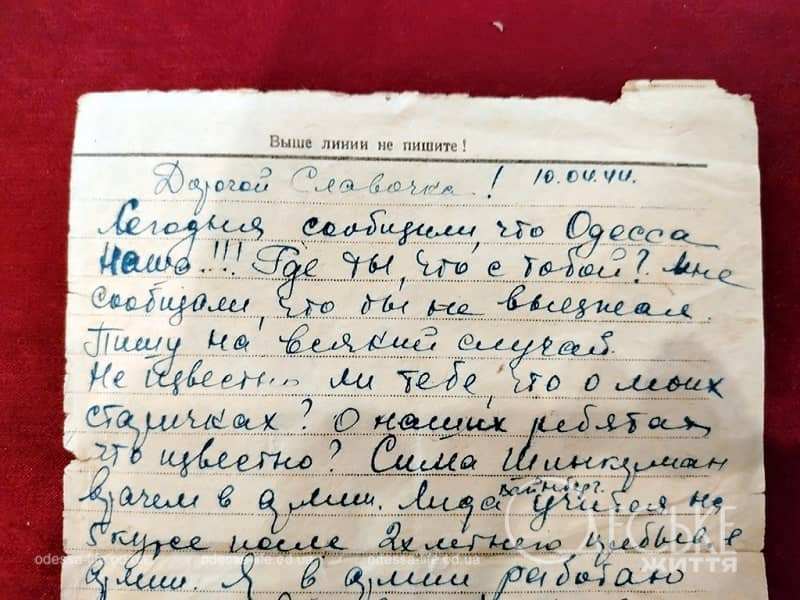 Выше линии не пишите!
Дорогой Славочка! 10.04.44.
Сегодня сообщили, что Одесса
наша!!! Где ты, что с тобой? Мне
сообщали, что ты не выезжал.
Пишу на всякий случай.
Не известно ли тебе, что о моих
старичках? О наших ребятах
что известно? Сима
врачем в армии. Лида учится на
5 курсе после 2х летнего в
армии. Я в армии работаю
ОДЕСЬКЕ
ЖИТТЯ
odessa-life.od.ua
odessa-life.od.ua
odessa-life.od.ua